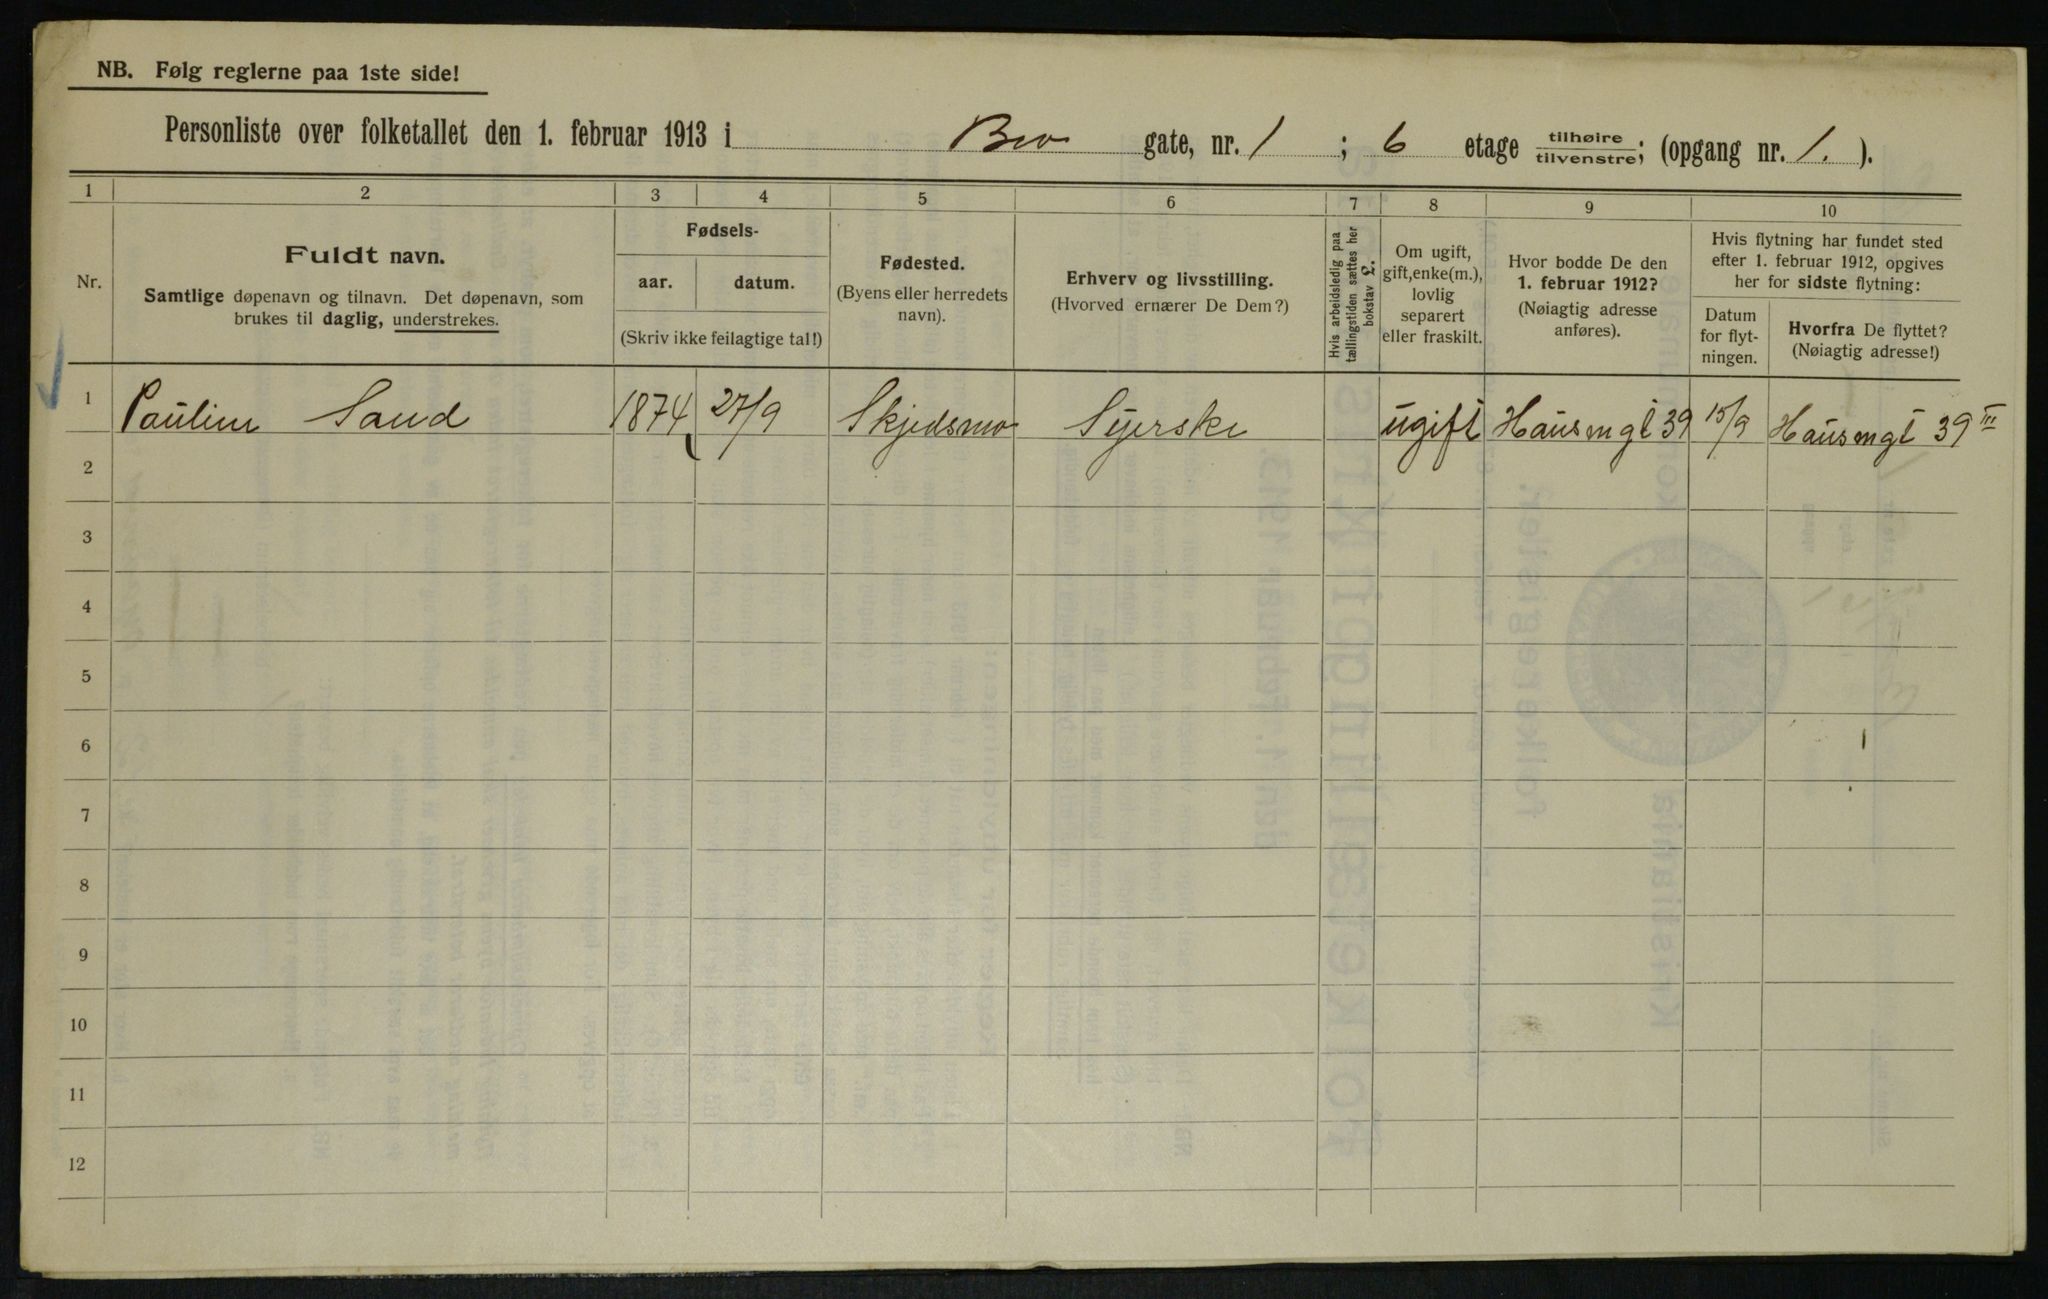 NB. Følg reglerne paa 1ste side!
Personliste over folketallet den 1. februar 1913 i Bro gate, nr. 1 ; 6 etage tilhøire/tilvenstre; (opgang nr. 1. ).
1 2 3 4 5 6 7 8 9 10
Nr.
Fuldt navn.
Samtlige døpenavn og tilnavn. Det døpenavn, som
brukes til daglig, understrekes.
Fødsels-
aar. datum.
(Skriv ikke feilagtige tal!)
Fødested.
(Byens eller herredets
navn).
Erhverv og livsstilling.
(Hvorved ernærer De Dem?)
Hvis arbeidsledig paa
tællingstiden sættes her
bokstav L.
Om ugift,
gift, enke(m.),
lovlig
separert
eller fraskilt.
Hvor bodde De den
1. februar 1912?
(Nøiagtig adresse
anføres).
Hvis flytning har fundet sted
efter 1. februar 1912, opgives
her for sidste flytning:
Datum
for flyt-
ningen.
Hvorfra De flyttet?
(Nøiagtig adresse!)
1 Pauline Sand 1874 27/9 Skjedsmo Syerske ugift Hausmgt 39 15/9 Hausmgt 39 III
2
3
4
5
6
7
8
9
10
11
12